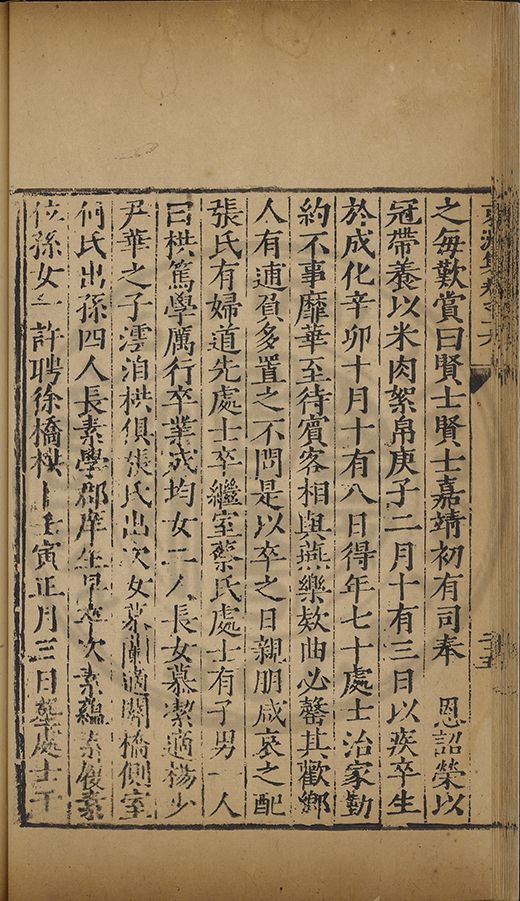 之每歎賞曰賢士賢士嘉靖初有司奉　恩詔榮以
冠帶養以米肉絮帛庚子二月十有三日以疾卒生
於成化辛卯十月十有八日得年七十處士治家勤
約不事靡華至待賓客相與燕樂欵曲必罄其歡鄉
人有逋負多置之不問是以卒之日親朋咸哀之配
張氏有婦道先處士卒繼室蔡氏處士有子男一人
曰栱篤學厲行卒業成均女二人長女慕潔適楊少
尹華之子澐洎栱俱張氏出次女慕蘭適關橋側室
何氏出孫四人長素學郡庠生早卒次素蘊素
位孫女一許聘徐橋栱卜壬寅正月三日葬處士于